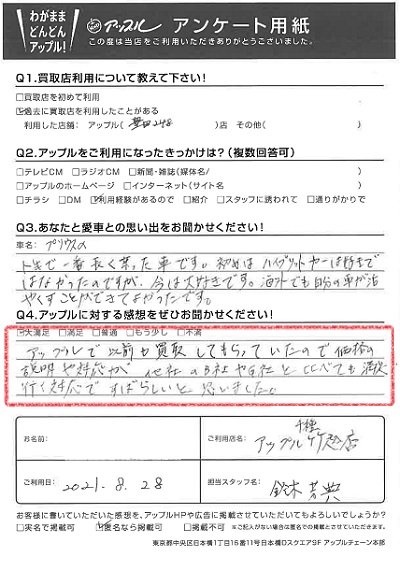 わがまま
どんどん
アップル!
アップル アンケート用紙
この度は当店をご利用いただきありがとうございました。
Q1.買取店利用について教えて下さい!
□買取店を初めて利用
☑過去に買取店を利用したことがある
利用した店舗: アップル( 248 )店 その他( )
Q2.アップルをご利用になったきっかけは?(複数回答可)
□テレビCM □ラジオCM □新聞・雑誌(媒体名/ )
□アップルのホームページ □インターネット(サイト名 )
□チラシ □DM ☑利用経験があるので □紹介 □スタッフに誘われて □通りがかりで
Q3.あなたと愛車との思い出をお聞かせください!
車名: プリウスα
一番長く乗った車です。初めはハイブリットカーは好きで
はなかったのですが、今は大好きです。海外でも自分の車が活
やくすことができてよかったです。
Q4.アップルに対する感想をぜひお聞かせください!
☑大満足 □満足 □普通 □もう少し □不満
アップルで以前も買取してもらっていたので価格の
説明や対応が 他社のB社やG社と比べても満足
行く対応ですばらしいと思いました。
お名前:
ご利用店名: 千種 アップル竹越店
ご利用日: 2021.8.28
担当スタッフ名: 鈴木
お客様に書いていただいた感想を、アップルHPや広告に掲載させていただいてもよろしいでしょうか?
□実名で掲載可 ☑匿名なら掲載可 □掲載不可 ※ご記入がない場合は匿名での掲載とさせていただきます。
東京都中央区日本橋1丁目16番11号日本橋DスクエアSF アップルチェーン本部